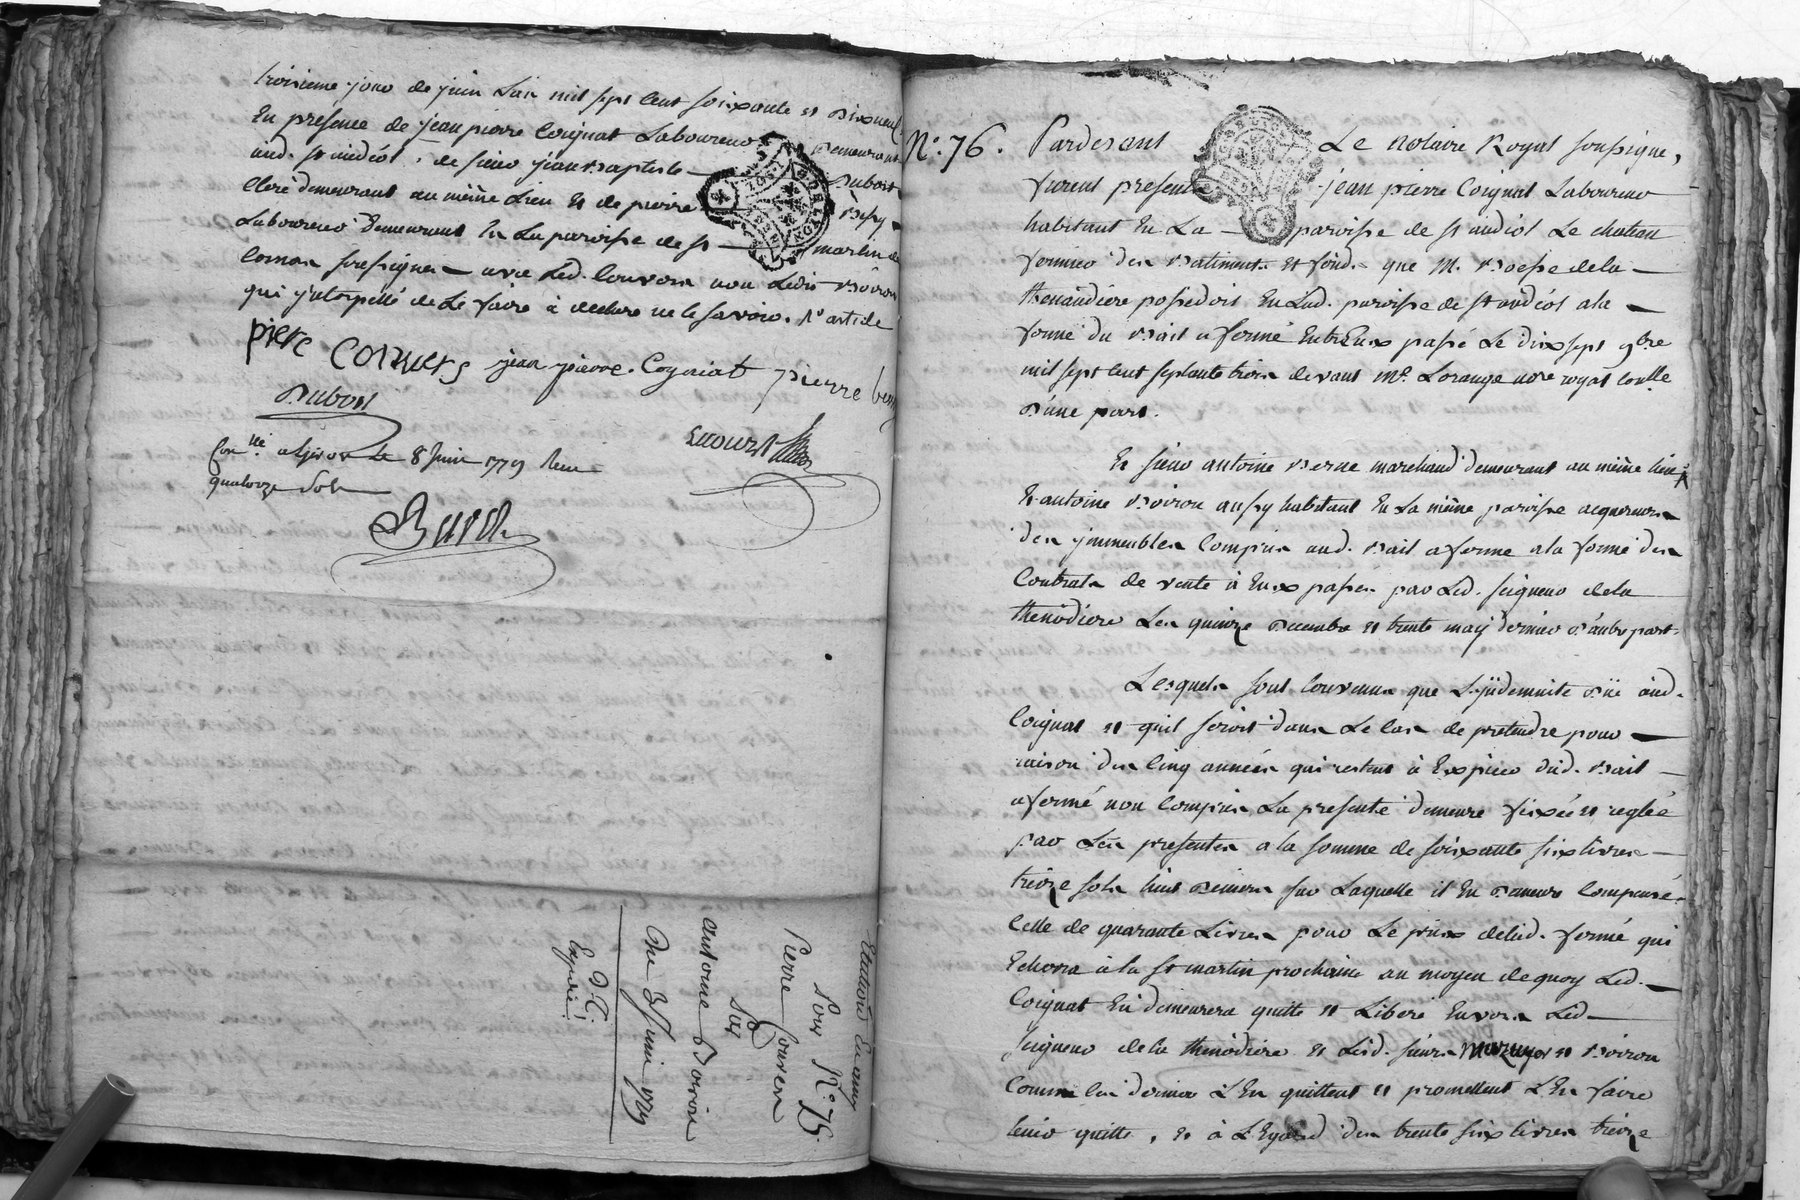 troisieme jour de juin L'an mil sept Cent soixante et Dixneuf
En presence de jean pierre Coignat Laboureur Demeurant
aud. St andéol, de sieur jean Baptiste Dubost
Clerc demeurant au même Lieu et de pierre Bessy
Laboureur Demeurant En La paroisse de St martin de
Cornas soussignes avec Led. Couvers non Ledit Boiron
qui jnterpellé de Le faire à declaré ne le savoir. d'article
piere Couvers jean pierre Coyniat pierre bessy
Dubost
Con.lé a Givors Le 8 Juin 1779 Reçu
quatorze Sols
Pour N.o 75.
Pierre Couvers
Sur
antoine Boiron
Du 3 Juin 1779
Expedié
N.o 76. Pardevant Le Notaire Royal soussigné,
furent presents jean pierre Coignat Laboureur
habitant En La paroisse de St andéol Le chateau
fermier des Batiments et fonds que M. Boesse dela
thenaudiere possedoit En Lad. paroisse de St andéol a la
forme du Bail a fermé Entr'Eux passé Le dix sept 9bre
mil sept Cent septante trois devant Me. Lorange nore royal
D'une part.
Et sieur antoine Berne marchand demeurant au même lieu
Et antoine Boiron aussy habitant En La même paroisse acquereurs
des jmmeubles Compris aud. Bail a ferme a la forme des
Contrats de vente à Eux passés par Led. seigneur dela
thenodiere Les quinze Decembre et trente may dernier D'autre part.
Lesquels sont Convenus que L'jndemnité düe aud.
Coignat et qu'il seroit dans Le Cas de pretendre pour
raison des Cinq années qui restent à Expirer dud. Bail
a fermé non Compris La presente demeure fixée et reglée
par Les presentes a la somme de soixante six livres
treize sols huit Deniers sur Laquelle il En Demeure Compensé
Celle de quarante Livres pour Le prix delad. fermé qui
Echerra à la St martin prochaine au moyen de quoy Led.
Coignat En demeurera quitte et Libere Envers Led.
seigneur dela thenodiere et Lesd. sieurs et Boiron
Comme Ces derniers L'En quittent et promettent L'En faire
tenir quitte, Et à L'Egard des trente six livres treize